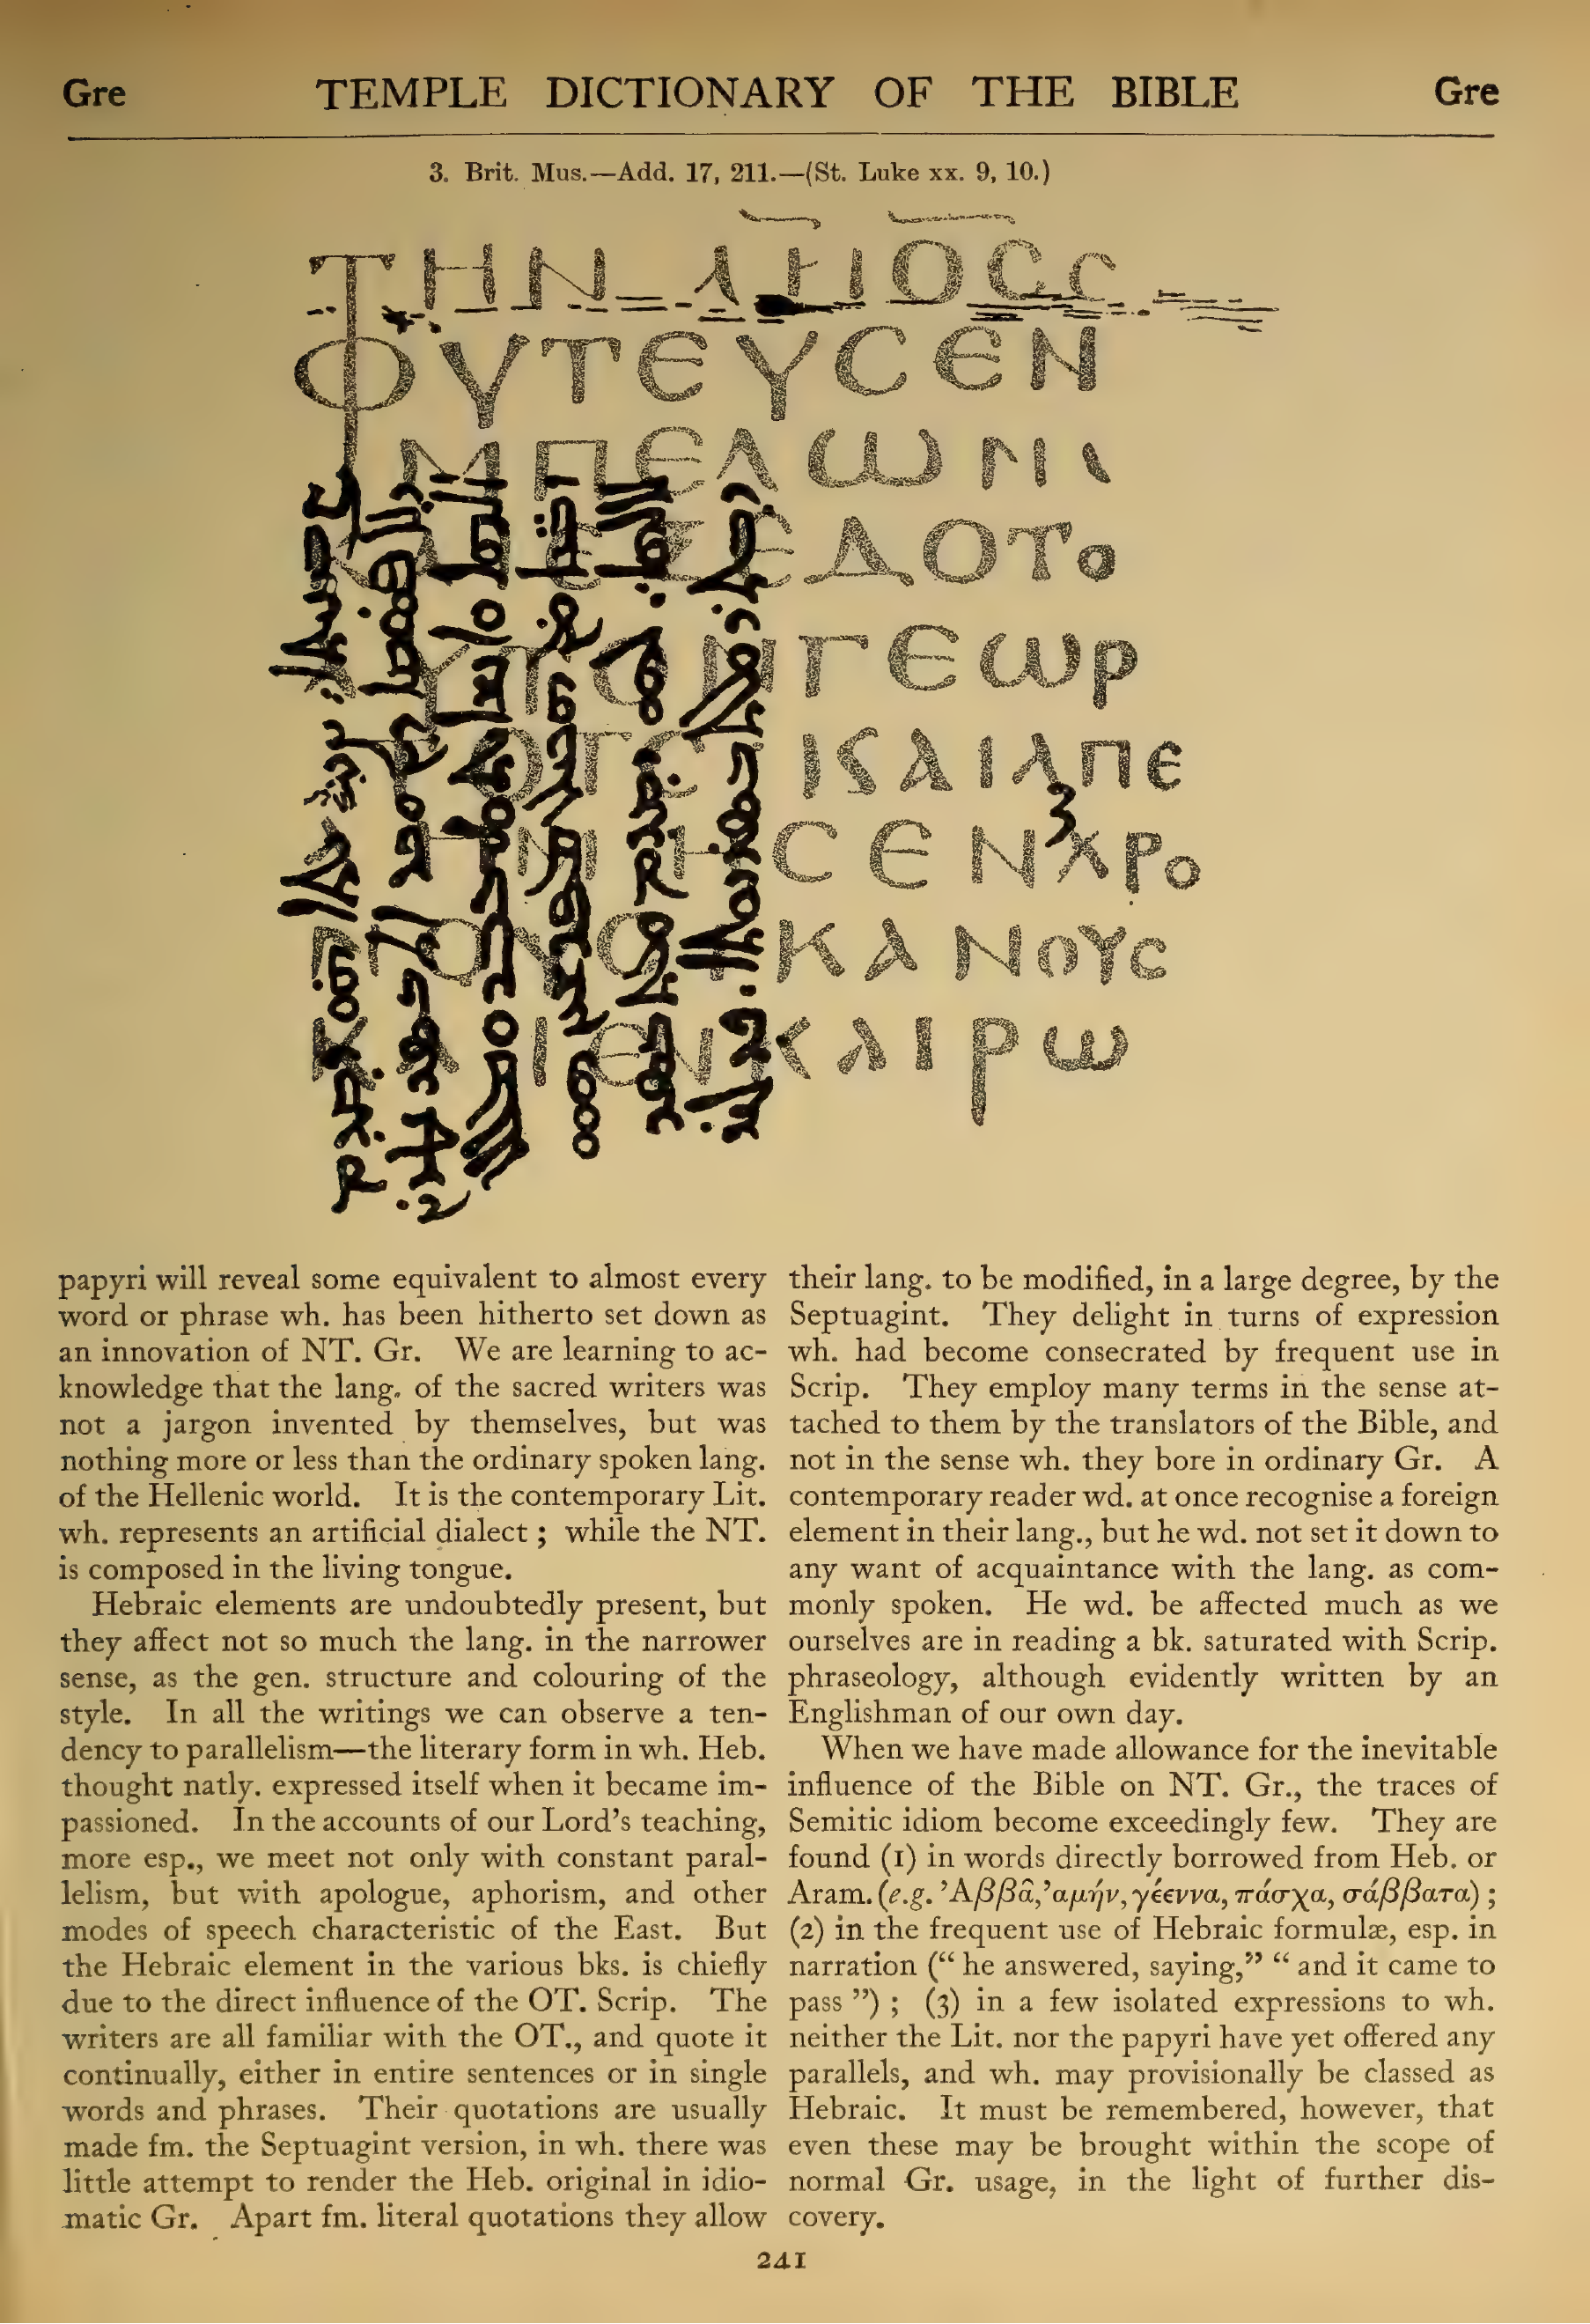 Gre TEMPLE DICTIONARY OF THE BIBLE Gre
3. Brit. Mus.—Add. 17, 211.—(St. Luke xx. 9, 10.)
ΤΗΝ
ΦΥΤΕΥϹΕΝ
ΜΠΕΛΩΝΙ
ΕΔΟΤΟ
ΓΕΩΡ
ΙϚΑΙΑΠΕ
ϹΕΝΧΡΟ
ΚΑΝΟΥϹ
ΚΑΙΕΝΚΑΙΡΩ
papyri will reveal some equivalent to almost every
word or phrase wh. has been hitherto set down as
an innovation of NT. Gr. We are learning to ac-
knowledge that the lang. of the sacred writers was
not a jargon invented by themselves, but was
nothing more or less than the ordinary spoken lang.
of the Hellenic world. It is the contemporary Lit.
wh. represents an artificial dialect ; while the NT.
is composed in the living tongue.
Hebraic elements are undoubtedly present, but
they affect not so much the lang. in the narrower
sense, as the gen. structure and colouring of the
style. In all the writings we can observe a ten-
dency to parallelism—the literary form in wh. Heb.
thought natly. expressed itself when it became im-
passioned. In the accounts of our Lord's teaching,
more esp., we meet not only with constant paral-
lelism, but with apologue, aphorism, and other
modes of speech characteristic of the East. But
the Hebraic element in the various bks. is chiefly
due to the direct influence of the OT. Scrip. The
writers are all familiar with the OT., and quote it
continually, either in entire sentences or in single
words and phrases. Their quotations are usually
made fm. the Septuagint version, in wh. there was
little attempt to render the Heb. original in idio-
matic Gr. Apart fm. literal quotations they allow
their lang. to be modified, in a large degree, by the
Septuagint. They delight in turns of expression
wh. had become consecrated by frequent use in
Scrip. They employ many terms in the sense at-
tached to them by the translators of the Bible, and
not in the sense wh. they bore in ordinary Gr. A
contemporary reader wd. at once recognise a foreign
element in their lang., but he wd. not set it down to
any want of acquaintance with the lang. as com-
monly spoken. He wd. be affected much as we
ourselves are in reading a bk. saturated with Scrip.
phraseology, although evidently written by an
Englishman of our own day.
When we have made allowance for the inevitable
influence of the Bible on NT. Gr., the traces of
Semitic idiom become exceedingly few. They are
found (1) in words directly borrowed from Heb. or
Aram. (e.g. 'Αββᾶ, 'αμήν, γέεννα, πάσχα, σάββατα) ;
(2) in the frequent use of Hebraic formulæ, esp. in
narration (“ he answered, saying,” “ and it came to
pass ”) ; (3) in a few isolated expressions to wh.
neither the Lit. nor the papyri have yet offered any
parallels, and wh. may provisionally be classed as
Hebraic. It must be remembered, however, that
even these may be brought within the scope of
normal Gr. usage, in the light of further dis-
covery.
241